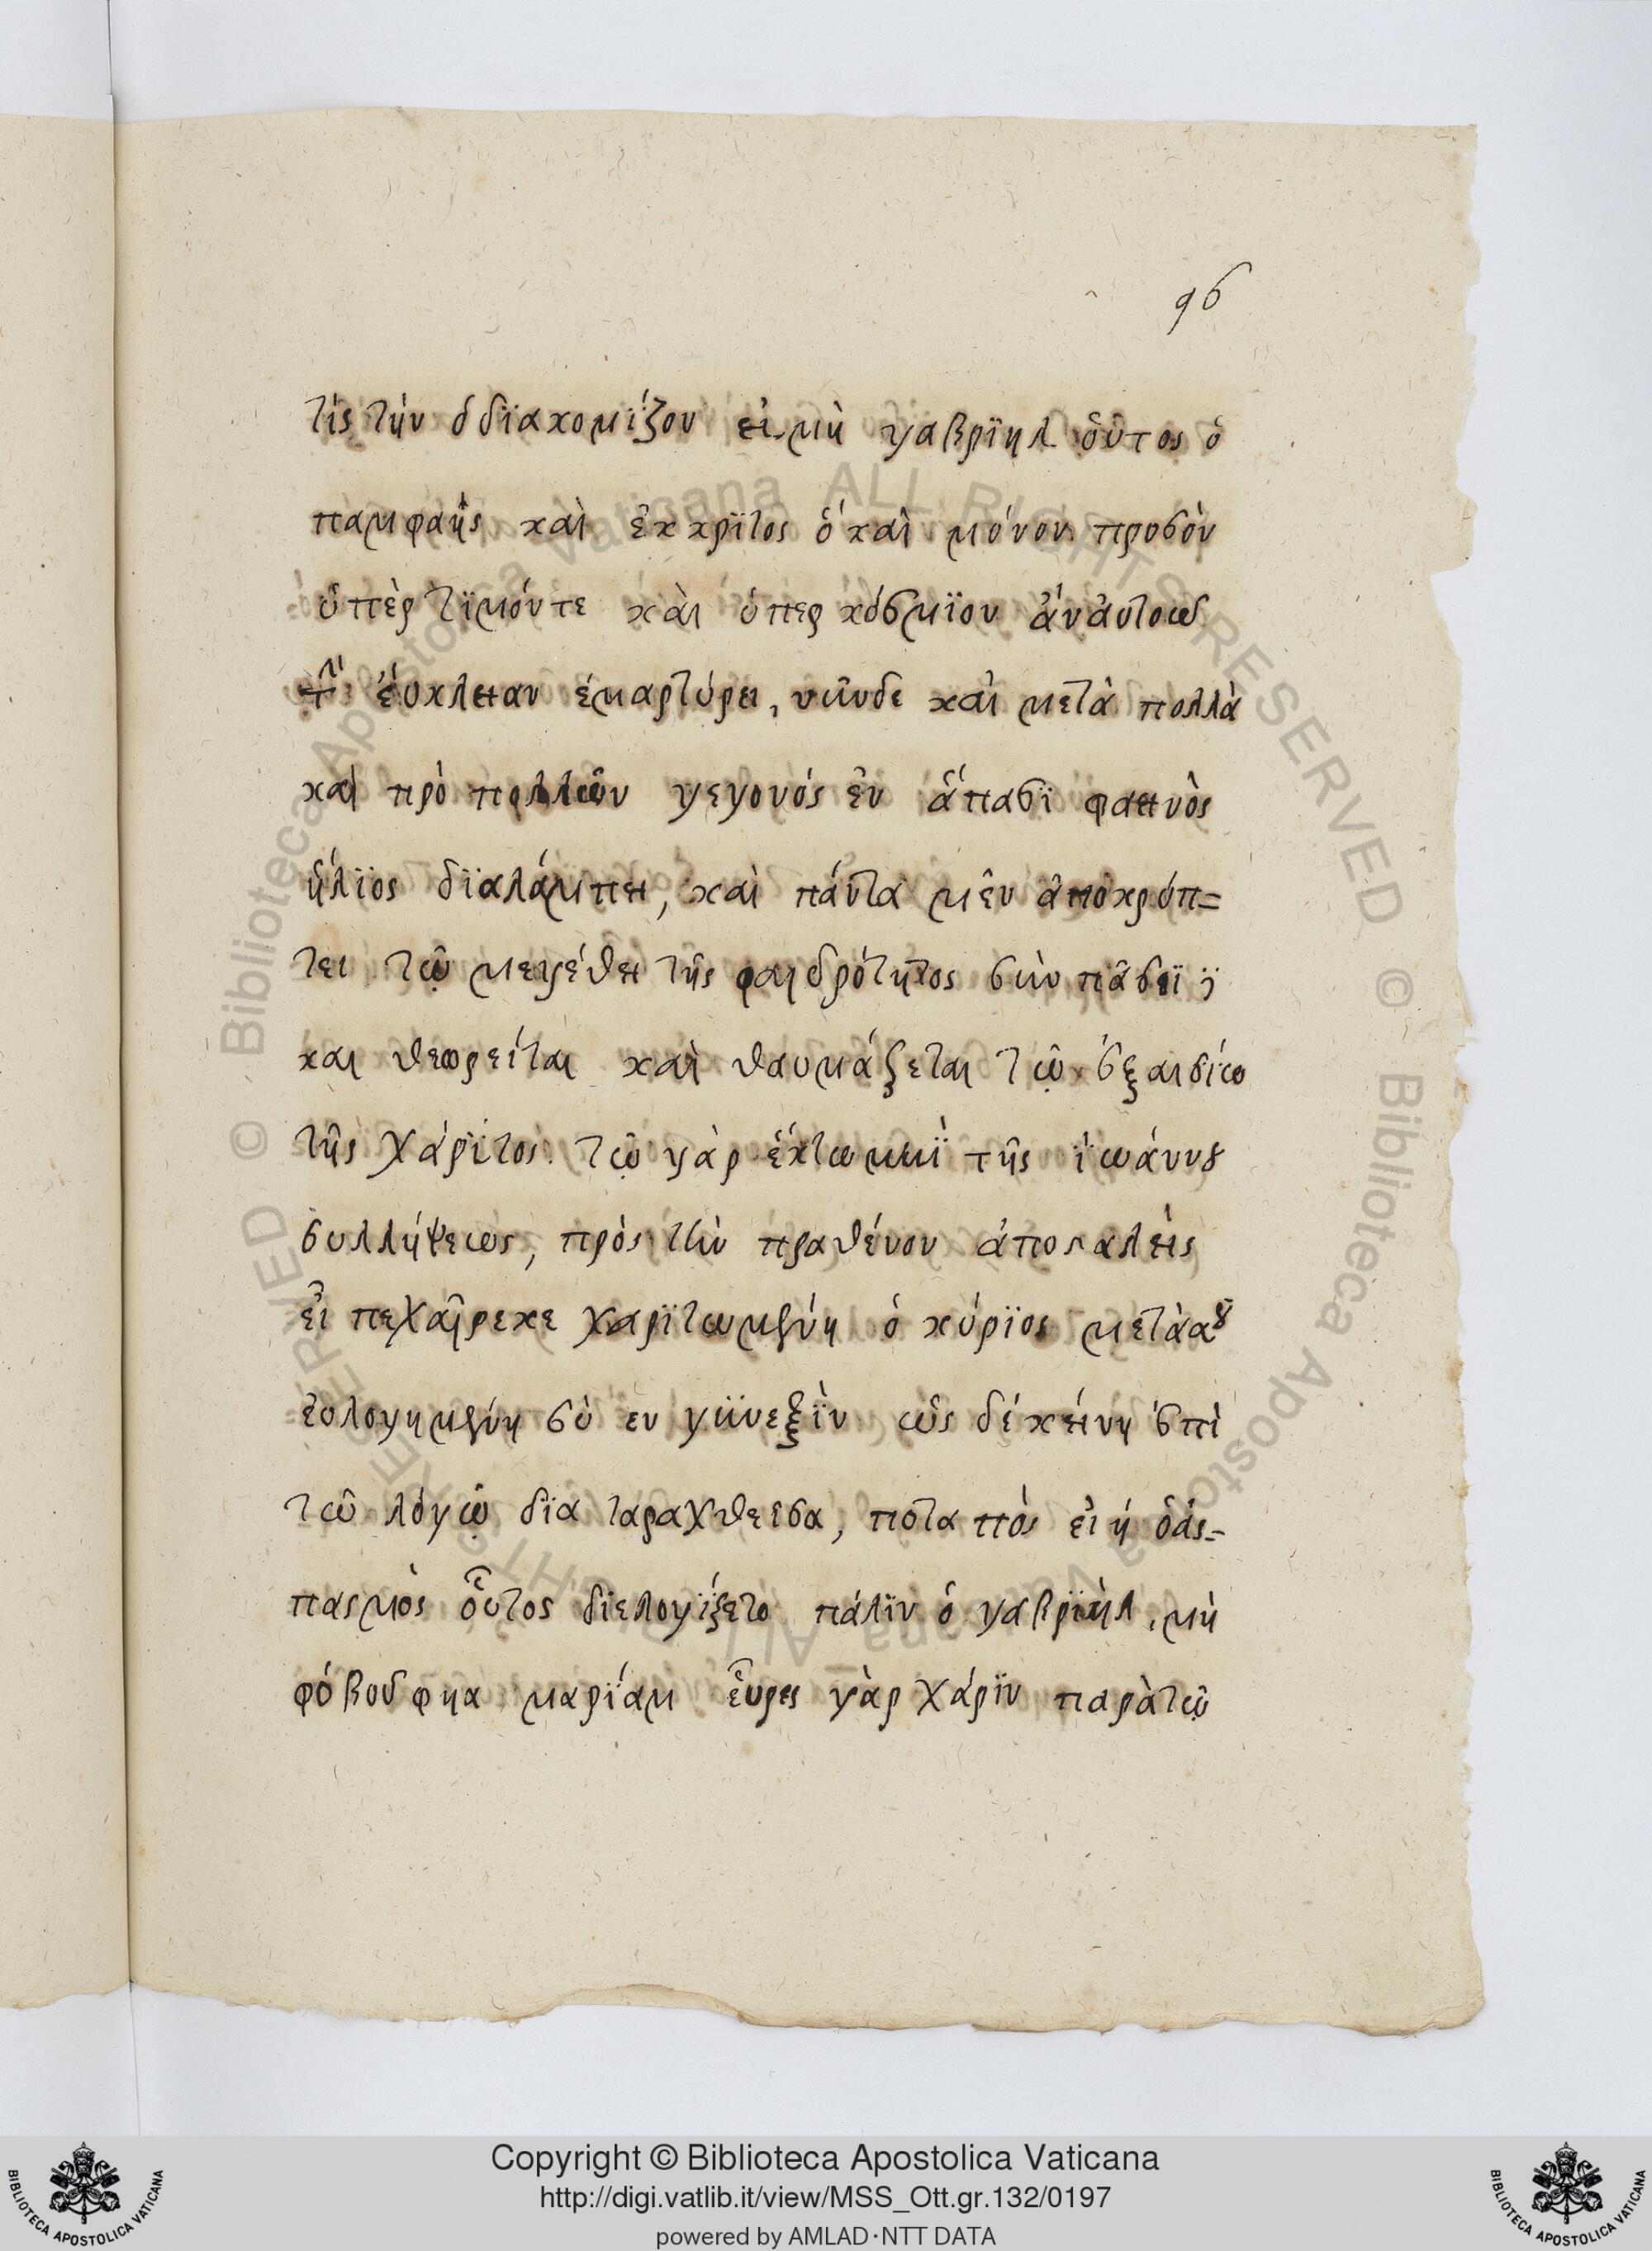 96
τίς τὴν ὁ δϊακομίζον εἰ μὴ γαβρϊὴλ οὗτος ὁ
παμφαὴς καὶ ἐκκρϊτος ὁ καὶ μόνον προσὸν
ὑπὲρ τϊμόντε καὶ ὑπερ κόσμϊον ἀν ἀυτοῦ
τὴν ἐύκλειαν ἐμαρτύρει, νῦνδε καὶ μετὰ πολλὰ
καὶ πρὸ πολλῶν γεγονός ἐν ἅπασϊ φαεινὸς
ἥλϊος δϊαλάμπει, καὶ πάντα μὲν ἀποκρύπ=
τει τῷ μεγέθει τῆς φαιδρότητος σὺν πᾶσϊ
και θεωρεῖται καὶ θαυμάζεται τῷ ἐξαισίω
τῆς χάρϊτος. τῷ γὰρ ἕκτω μηϊ τῆς ϊωάννου
συλλήψεως, πρὸς τὴν πραθένον ἀποσταλεὶς
εἶπε χαῖρε κε χαρϊτωμένη ὁ κύρϊος μετὰ σοῦ
ἐυλογημένη σὺ εν γϋνεξὶν ὡς δέκείνη ἐπὶ
τῶ λόγῳ δϊα ταραχθεῖσα, ποταπὸς εἰ ἡ ὁἀς=
πασμὸς οὗτος δϊελογίζετο πάλϊν ὁ γαβρϊὴλ, μὴ
φόβου φησα μαρϊάμ εὗρες γὰρ χάρϊν παρὰ τῷ
Copyright © Biblioteca Apostolica Vaticana
http://digi.vatlib.it/view/MSS_Ott.gr.132/0197
powered by AMLAD·NTT DATA
BIBLIOTECA APOSTOLICA VATICANA
BIBLIOTECA APOSTOLICA VATICANA
© Biblioteca Apostolica Vaticana ALL RIGHTS RESERVED
© Biblioteca Apostolica Vaticana ALL RIGHTS RESERVED